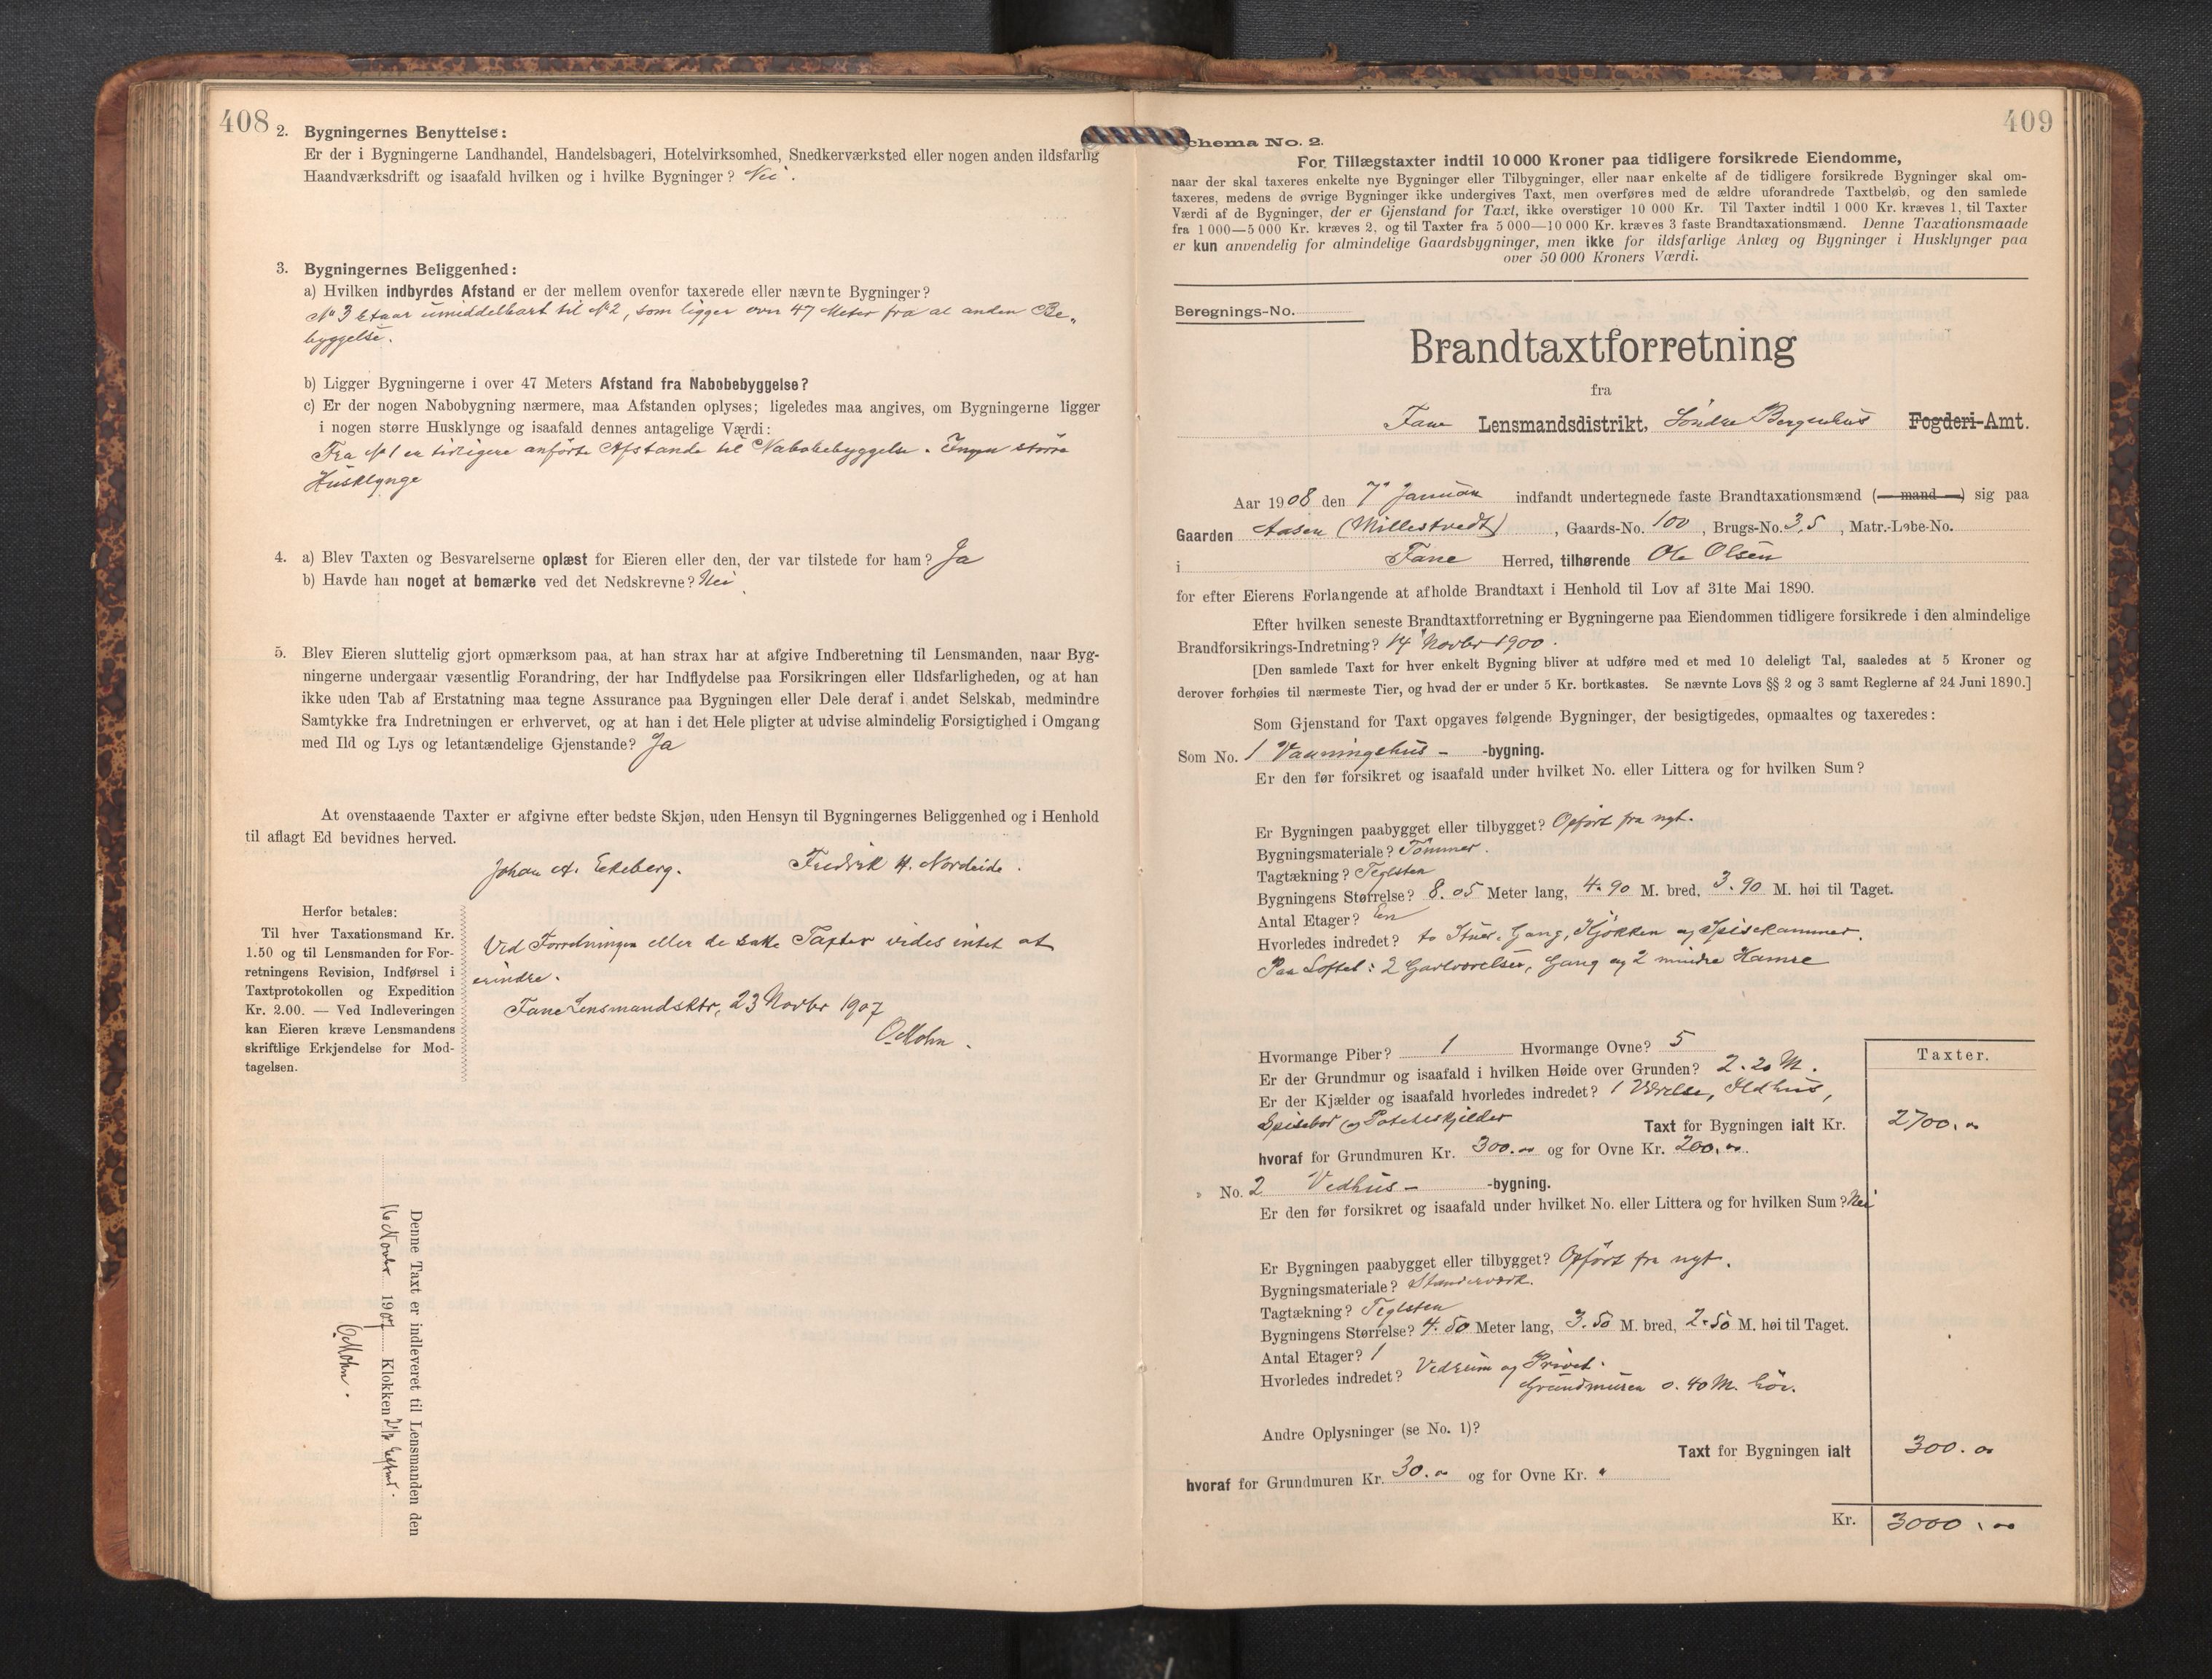 408
2. Bygningernes Benyttelse:
Er der i Bygningerne Landhandel, Handelsbageri, Hotelvirksomhed, Snedkerværksted eller nogen anden ildsfarlig
Haandværksdrift og isaafald hvilken og i hvilke Bygninger? Nei.
3. Bygningernes Beliggenhed:
a) Hvilken indbyrdes Afstand er der mellem ovenfor taxerede eller nævnte Bygninger?
No 3 staar umiddelbart til No 2, som ligger over 47 Meter fra al anden Be-
byggelse.
b) Ligger Bygningerne i over 47 Meters Afstand fra Nabobebyggelse?
c) Er der nogen Nabobygning nærmere, maa Afstanden oplyses; ligeledes maa angives, om Bygningerne ligger
i nogen større Husklynge og isaafald dennes antagelige Værdi:
Fra No 1 er tidligere anførte Afstande til Nabobebyggelse. Ingen større
Husklynge
4. a) Blev Taxten og Besvarelserne oplæst for Eieren eller den, der var tilstede for ham? Ja
b) Havde han noget at bemærke ved det Nedskrevne? Nei
5. Blev Eieren sluttelig gjort opmærksom paa, at han strax har at afgive Indberetning til Lensmanden, naar Byg-
ningerne undergaar væsentlig Forandring, der har Indflydelse paa Forsikringen eller Ildsfarligheden, og at han
ikke uden Tab af Erstatning maa tegne Assurance paa Bygningen eller Dele deraf i andet Selskab, medmindre
Samtykke fra Indretningen er erhvervet, og at han i det Hele pligter at udvise almindelig Forsigtighed i Omgang
med Ild og Lys og letantændelige Gjenstande? Ja
At ovenstaaende Taxter er afgivne efter bedste Skjøn, uden Hensyn til Bygningernes Beliggenhed og i Henhold
til aflagt Ed bevidnes herved.
Johan A. Eekeberg. Fredrik H. Nordeide.
Herfor betales:
Til hver Taxationsmand Kr.
1.50 og til Lensmanden for For-
retningens Revision, Indførsel i
Taxtprotokollen og Expedition
Kr. 2.00. — Ved Indleveringen
kan Eieren kræve Lensmandens
skriftlige Erkjendelse for Mod-
tagelsen.
Ved Forretningen eller de satte Taxter vides intet at
erindre.
Fane Lensmandsktr, 23 Novbr 1907
O. Mohn.
Denne Taxt er indleveret til Lensmanden den
16 Novbr 1907 Klokken 2 1/2 Efterm.
O. Mohn.
409
chema No. 2.
For Tillægstaxter indtil 10 000 Kroner paa tidligere forsikrede Eiendomme,
naar der skal taxeres enkelte nye Bygninger eller Tilbygninger, eller naar enkelte af de tidligere forsikrede Bygninger skal om-
taxeres, medens de øvrige Bygninger ikke undergives Taxt, men overføres med de ældre uforandrede Taxtbeløb, og den samlede
Værdi af de Bygninger, der er Gjenstand for Taxt, ikke overstiger 10 000 Kr. Til Taxter indtil 1 000 Kr. kræves 1, til Taxter
fra 1 000—5 000 Kr. kræves 2, og til Taxter fra 5 000—10 000 Kr. kræves 3 faste Brandtaxationsmænd. Denne Taxationsmaade
er kun anvendelig for almindelige Gaardsbygninger, men ikke for ildsfarlige Anlæg og Bygninger i Husklynger paa
over 50 000 Kroners Værdi.
Beregnings-No.
Brandtaxtforretning
fra
Fane Lensmandsdistrikt, Søndre Bergenhus Fogderi-Amt.
Aar 1908 den 7de Januar indfandt undertegnede faste Brandtaxationsmænd (— mand —) sig paa
Gaarden Aasen (Millestvedt), Gaards-No. 100, Brugs-No. 3,5, Matr.-Løbe-No.
i Fane Herred, tilhørende Ole Olsen
for efter Eierens Forlangende at afholde Brandtaxt i Henhold til Lov af 31te Mai 1890.
Efter hvilken seneste Brandtaxtforretning er Bygningerne paa Eiendommen tidligere forsikrede i den almindelige
Brandforsikrings-Indretning? 14 Novbr 1900.
[Den samlede Taxt for hver enkelt Bygning bliver at udføre med et med 10 deleligt Tal, saaledes at 5 Kroner og
derover forhøies til nærmeste Tier, og hvad der er under 5 Kr. bortkastes. Se nævnte Lovs §§ 2 og 3 samt Reglerne af 24 Juni 1890.]
Som Gjenstand for Taxt opgaves følgende Bygninger, der besigtigedes, opmaaltes og taxeredes:
Som No. 1 Vaaningshus- -bygning.
Er den før forsikret og isaafald under hvilket No. eller Littera og for hvilken Sum?
Er Bygningen paabygget eller tilbygget? Opført fra nyt.
Bygningsmateriale? Tømmer.
Tagtækning? Teglsten
Bygningens Størrelse? 8.05 Meter lang, 4.90 M. bred, 3.90 M. høi til Taget.
Antal Etager? En
Hvorledes indredet? to Stuer, Gang, Kjøkken og Spisekammer.
Paa Loftet: 2 Gavlværelser, Gang og 2 mindre Kamre
Hvormange Piber? 1 Hvormange Ovne? 5
Er der Grundmur og isaafald i hvilken Høide over Grunden? 2.20 M.
Er der Kjælder og isaafald hvorledes indredet? 1 Værelse, Ildhus,
Spisebod og Poteteskjelder Taxt for Bygningen ialt Kr.
Taxter.
2700.00
hvoraf for Grundmuren Kr. 300.00 og for Ovne Kr. 200.00.
" No. 2 Vedhus- -bygning.
Er den før forsikret og isaafald under hvilket No. eller Littera og for hvilken Sum? Nei
Er Bygningen paabygget eller tilbygget? Opført fra nyt.
Bygningsmateriale? Standerværk.
Tagtækning? Teglsten
Bygningens Størrelse? 4.50 Meter lang, 3.50 M. bred, 2.50 M. høi til Taget.
Antal Etager? 1
Hvorledes indredet? Vedrum og Privet.
Grundmuren 0.40 M. høi.
Andre Oplysninger (se No. 1)?
Taxt for Bygningen ialt 300.00
hvoraf for Grundmuren Kr. 30.00 og for Ovne Kr. "
Kr. 3000.00